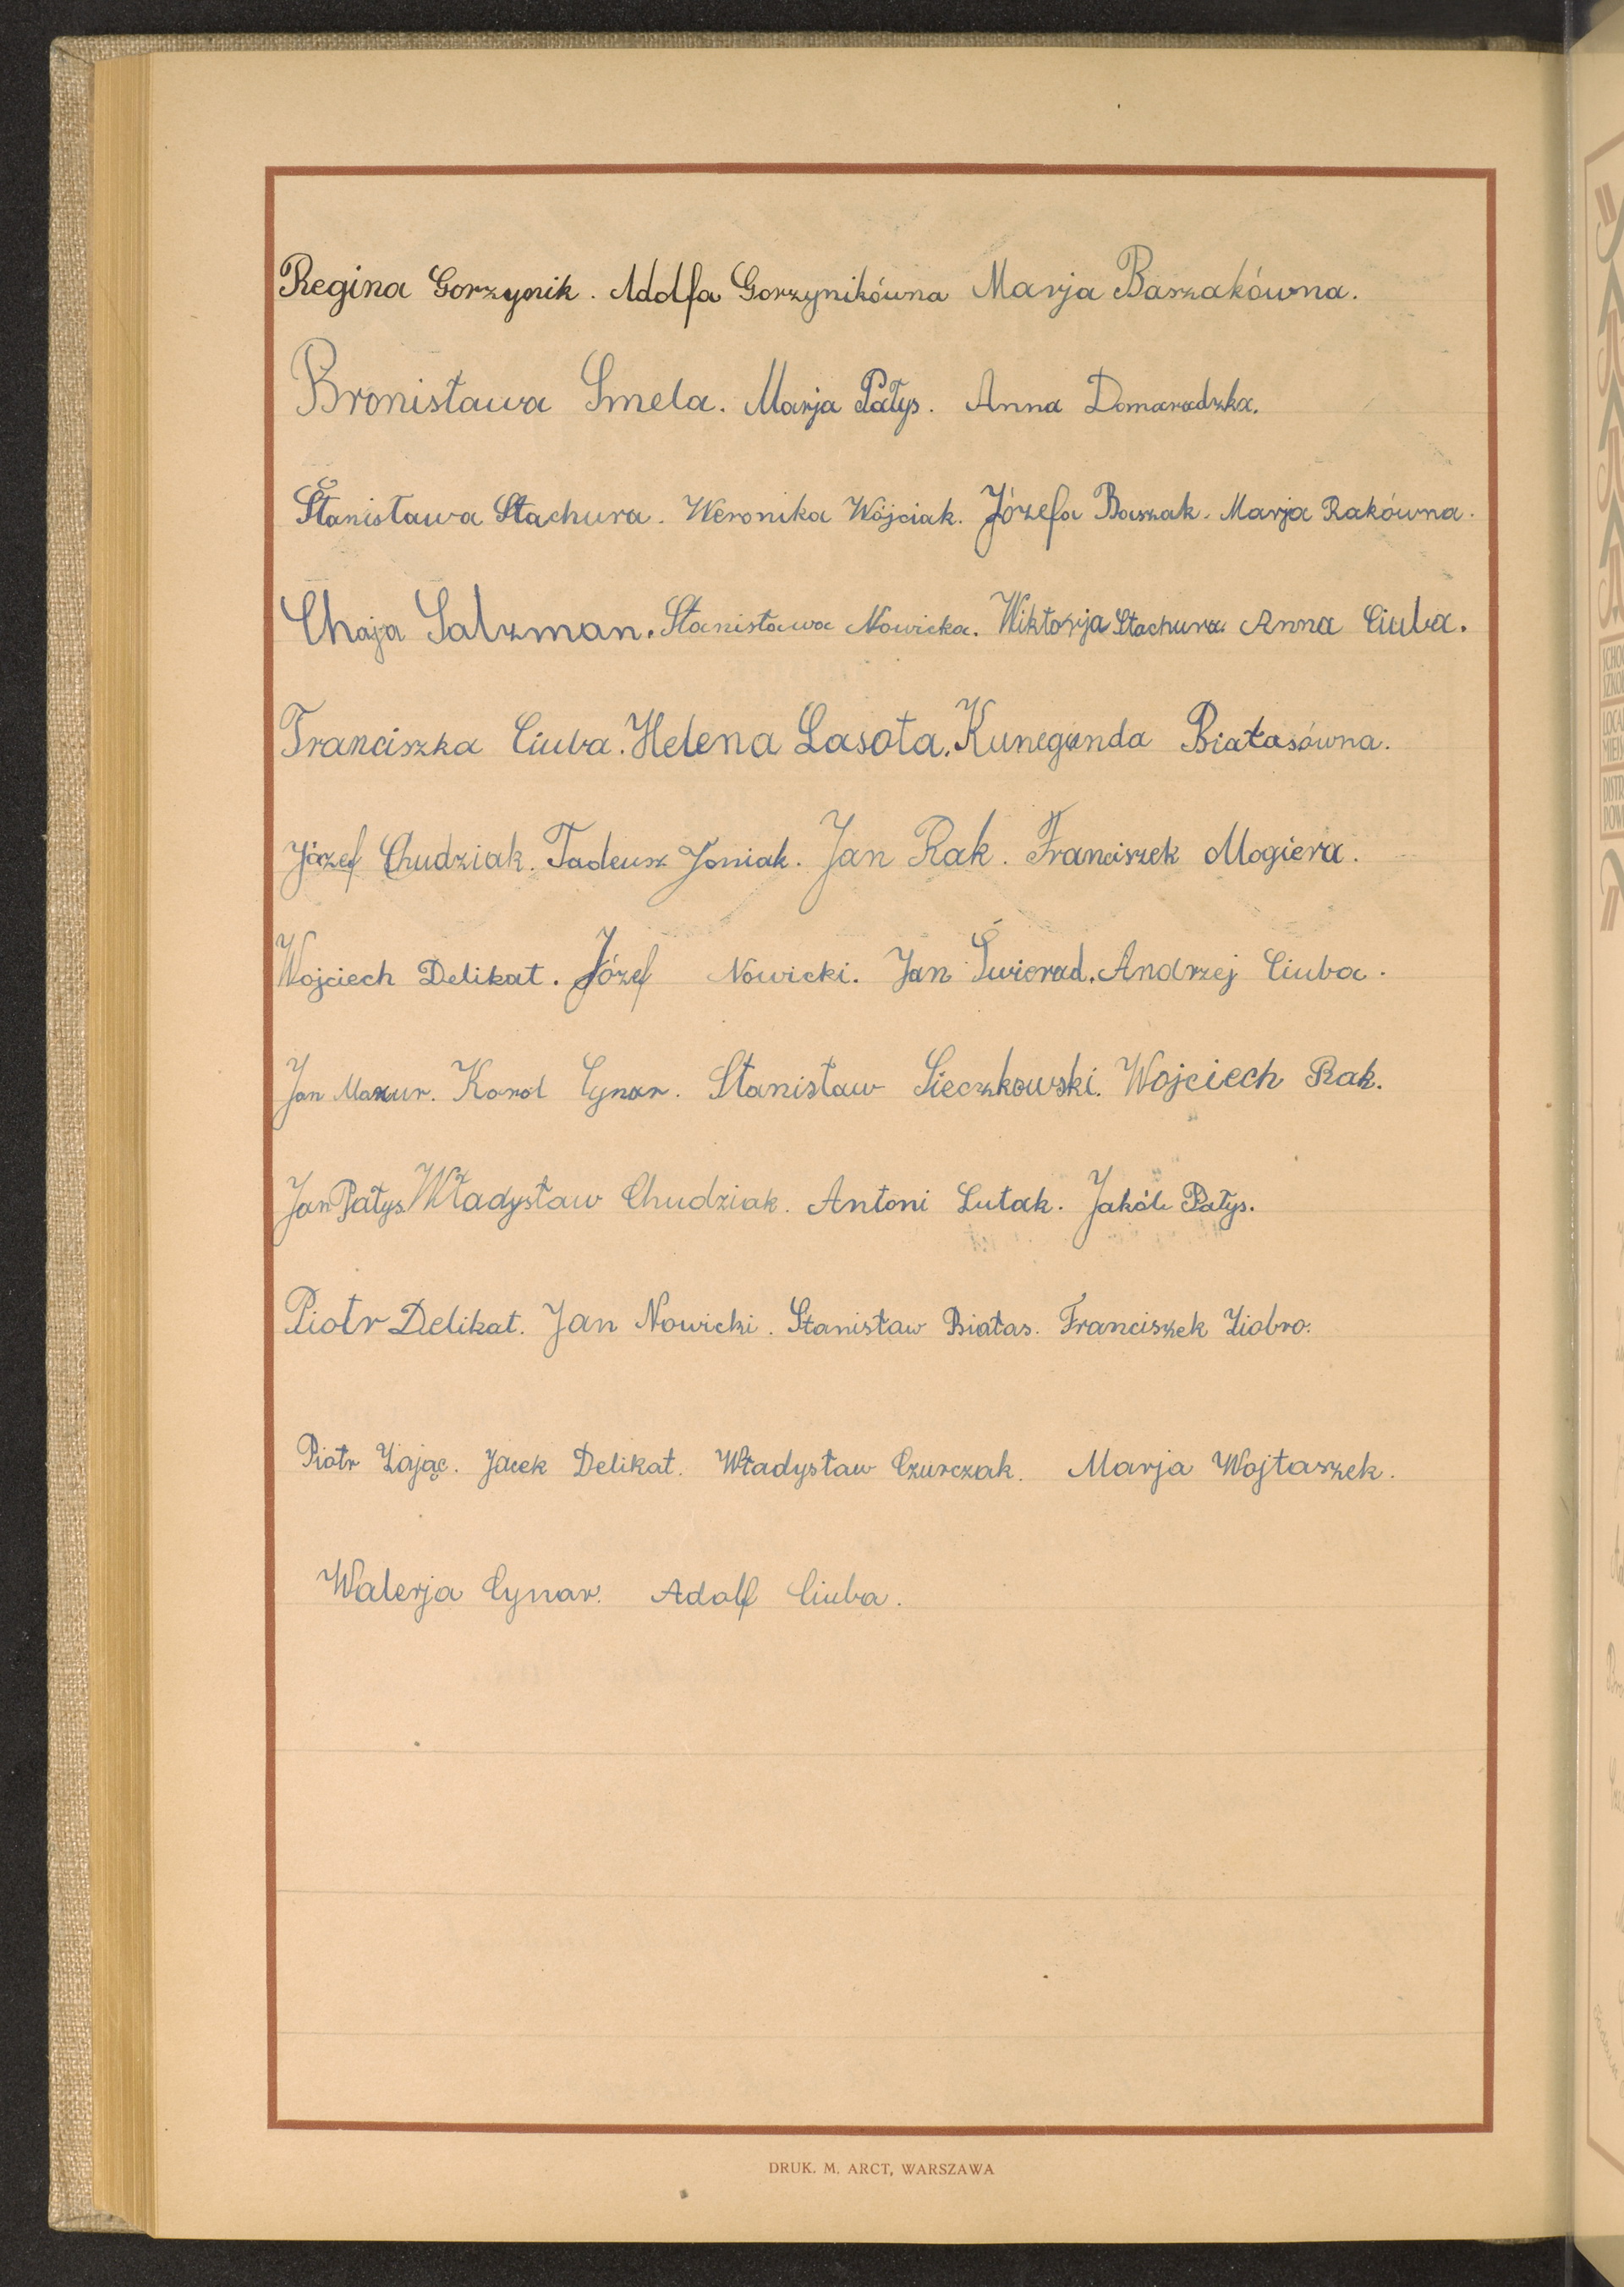 Regina Gorzynik. Adolfa Gorzynikówna Marja Baszakówna.
Bronisława Smela. Marja Pałys. Anna Domaradzka.
Stanisława Stachura. Weronika Wójciak. Józefa Baszak. Marja Rakówna.
Chaja Salzman. Stanisława Nowicka. Wiktorja Stachura. Anna Ciuba.
Franciszka Ciuba. Helena Lasota. Kunegunda Białasówna.
Józef Chudziak. Tadeusz Joniak. Jan Rak. Franciszek Mogiera.
Wojciech Delikat. Józef Nowicki. Jan Świerad. Andrzej Ciuba.
Jan Mazur. Karol Cynar. Stanisław Sieczkowski. Wojciech Rak.
Jan Pałys. Władysław Chudziak. Antoni Lutak. Jakób Pałys.
Piotr Delikat. Jan Nowicki. Stanisław Białas. Franciszek Ziobro.
Piotr Zając. Jacek Delikat. Władysław Czurczak. Marja Wojtaszek.
Walerja Cynar. Adolf Ciuba.
DRUK. M. ARCT, WARSZAWA